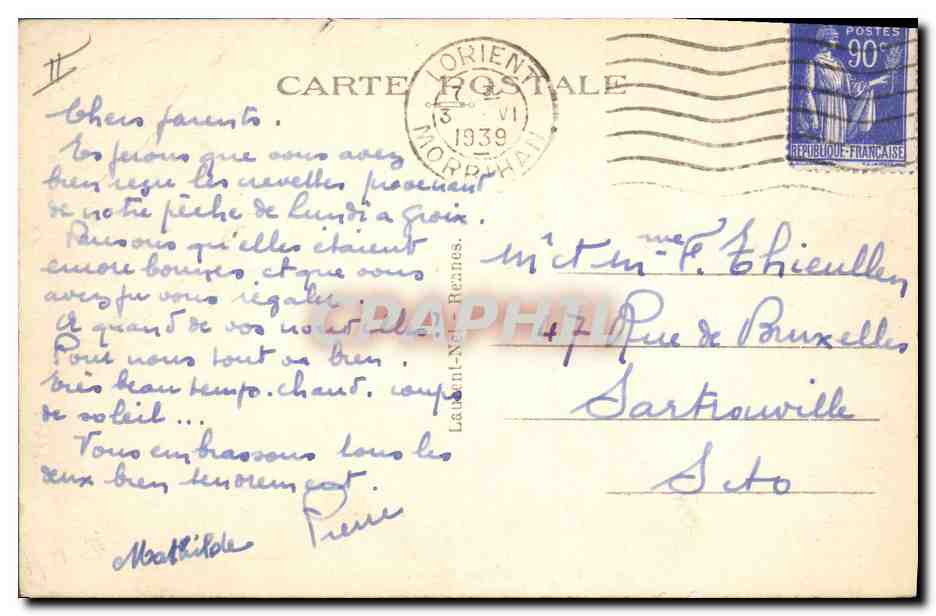 II
CARTE POSTALE
LORIENT
17
3 VI
1939
MORBIHAN
POSTES
90c
REPUBLIQUE-FRANÇAISE
Chers parents.
Espérons que vous avez
bien reçu les crevettes provenant
de notre pêche de Lundi a Groix.
Pensons qu'elles étaient
encore bonnes et que vous
avez pu vous régaler.
A quand de vos nouvelles?
Pour nous tout va bien.
Très beau temps. chaud. coups
de soleil...
Vous embrassons tous les
deux bien tendrement.
Mathilde Pierre
Laurent-Nel - Rennes.
CPAPHIL
Mr et Mme F. Thieullen
47 Rue de Bruxelles
Sartrouville
S et O